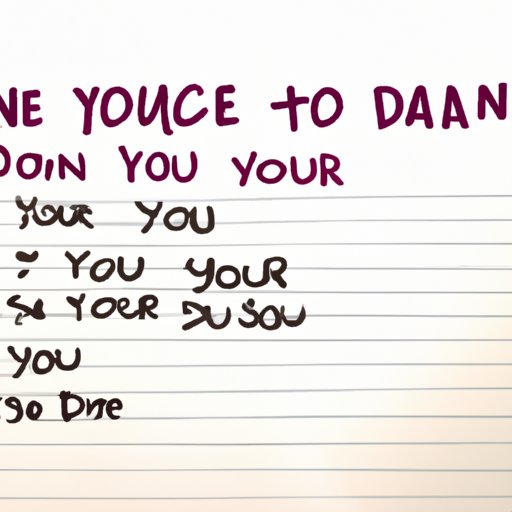 NE YOUCE TO DAAN
DOIN YOU YOUR
YOUR YOU
YOU YOUR
YOER
YOU
Dne